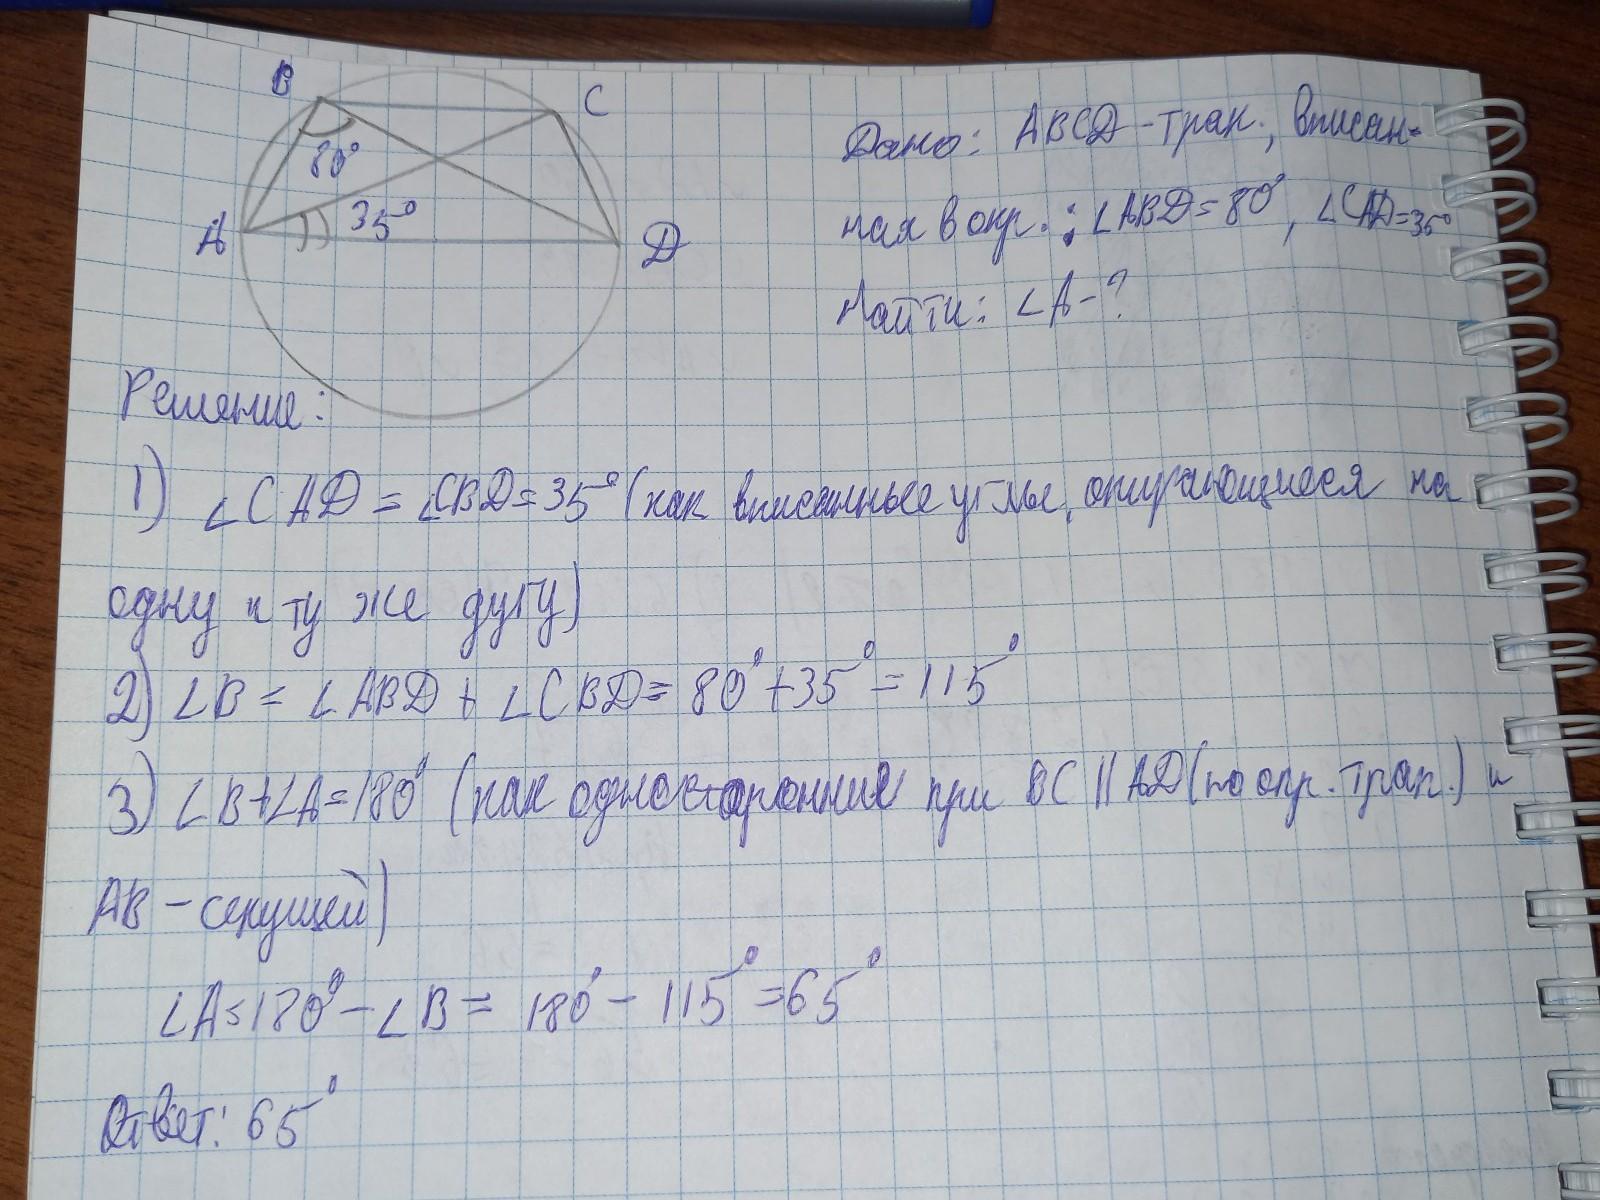 B
C
80°
35°
A
D
Дано: ABCD - трап., вписан-
ная в окр.; ∠ABD = 80°, ∠CAD = 35°
Найти: ∠A - ?
Решение:
1) ∠CAD = ∠CBD = 35° (как вписанные углы, опирающиеся на
одну и ту же дугу)
2) ∠B = ∠ABD + ∠CBD = 80° + 35° = 115°
3) ∠B + ∠A = 180° (как односторонние при BC || AD (по опр. трап.) и
AB - секущей)
∠A = 180° - ∠B = 180° - 115° = 65°
Ответ: 65°